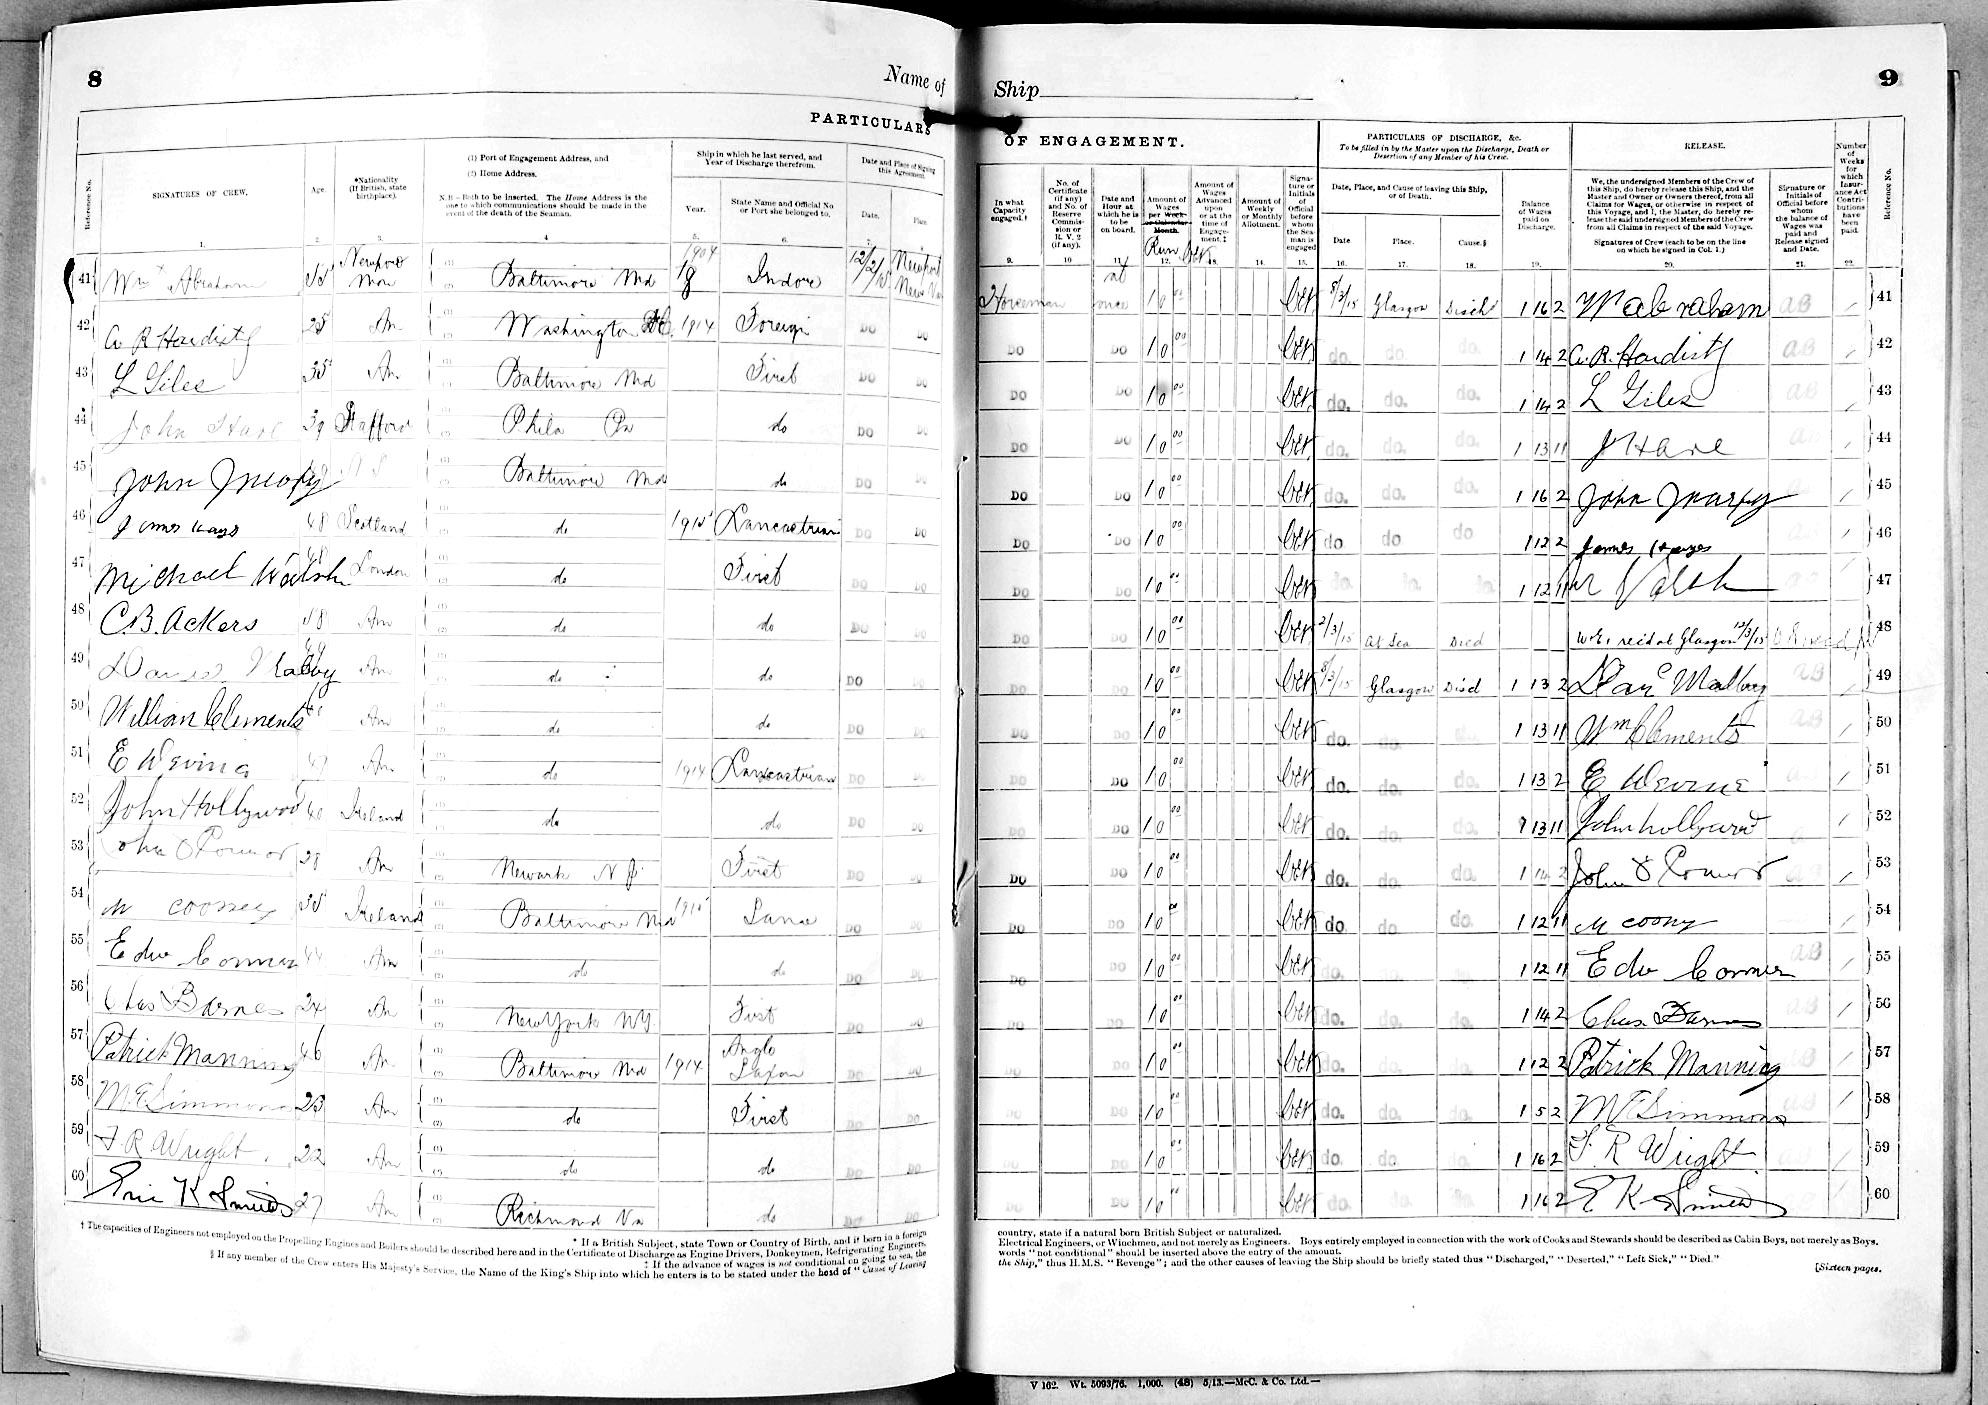 8
Name of
PARTICULARS
Reference No.
SIGNATURES OF CREW.
Age.
*Nationality (If British, state birthplace).
(1) Port of Engagement Address, and
(2) Home Address.
N.B.—Both to be inserted. The Home Address is the one to which communications should be made in the event of the death of the Seaman.
Ship in which he last served, and Year of Discharge therefrom.
Year.
State Name and Official No. or Port she belonged to.
Date and Place of Signing this Agreement.
Date.
Place
1. 2. 3. 4 5. 6. 7.
41 Wm Abraham Newport Mon Baltimore Md 1904 Indore 12/2/15 Newport News Va
42 C R Hardisty 25 Am Washington DC 1914 Foreign DO DO
43 L Giles 35 Am Baltimore Md First DO DO
44 John Hare 39 Stafford Phila Pa do DO DO
45 John Baltimore Md do DO DO
46 James Hayes 48 Scotland do 1915 Lancastrian DO DO
47 Michael Walsh 48 London do First DO DO
48 C.B. Ackers Am do do DO DO
49 Am do do DO DO
50 William Clements Am do do DO DO
51 E Am do 1914 Lancastrian DO DO
52 John Hollywood 40 Ireland do do DO DO
53 John O Connor 28 Am Newark N J. First DO DO
54 M 35 Ireland Baltimore Md 1915 DO DO
55 Edw Conner 44 Am do do DO DO
56 Chas Barnes 24 Am New York NY. First DO DO
57 Patrick Manning 46 Am Baltimore Md 1914 Anglo Saxon DO DO
58 M. E Simmons 23 Am do First DO DO
59 F R Wright. 22 Am do do DO DO
60 Eric K Smith 27 Am Richmond Va do DO DO
† The capacities of Engineers not employed on the Propelling Engines and Boilers should be described here and in the Certificate of Discharge as Engine Drivers, Donkeymen, Refrigerating Engineers,
* If a British Subject, state Town or Country of Birth, and if born in a foreign
‡ If the advance of wages is not conditional on going to sea, the
§ If any member of the Crew enters His Majesty's Service, the Name of the King's Ship into which he enters is to be stated under the head of "Cause of Leaving
Ship
9
OF ENGAGEMENT.
PARTICULARS OF DISCHARGE, &c.
To be filled in by the Master upon the Discharge, Death or Desertion of any Member of his Crew.
RELEASE.
In what Capacity engaged.†
No. of Certificate (if any) and No. of Reserve Commission or R. V. 2 (if any).
Date and Hour at which he is to be on board.
Amount of Wages per Week or Calendar Month.
Run
Amount of Wages Advanced upon or at the time of Engagement.‡
Amount of Weekly or Monthly Allotment.
Signature or Initials of Official before whom the Seaman is engaged
Date, Place, and Cause of leaving this Ship, or of Death.
Date
Place.
Cause.§
Balance of Wages paid on Discharge.
We, the undersigned Members of the Crew of this Ship, do hereby release this Ship, and the Master and Owner or Owners thereof, from all Claims for Wages, or otherwise in respect of this Voyage, and I, the Master, do hereby release the said undersigned Members of the Crew from all Claims in respect of the said Voyage.
Signatures of Crew (each to be on the line on which he signed in Col. 1.)
Signature or Initials of Official before whom the balance of Wages was paid and Release signed and Date.
Number of Weeks for which Insurance Act Contributions have been paid.
Reference No.
9. 10 11. 12. 13. 14. 15. 16. 17. 18. 19. 20. 21. 22.
Horseman at once 10 00 8/3/15 Glasgow Disch 1 16 2 Wm abraham AB 41
DO DO 10 00 do. do. do. 1 14 2 C. R. Hardisty AB 42
DO DO 10 00 do. do. do. 1 14 2 L Giles AB 43
DO DO 10 00 do. do. do. 1 13 11 J Hare 44
DO DO 10 00 do. do. do. 1 16 2 John 45
DO DO 10 00 do do do 1 12 2 James Hayes 46
DO DO 10 00 do. do. do. 1 12 11 M Walsh 47
DO DO 10 00 2/3/15 At Sea Died recd at Glasgow 12/3/15 48
DO DO 10 00 8/3/15 Glasgow Discd 1 13 2 AB 49
DO DO 10 00 do. do. do. 1 13 11 Wm Clements AB 50
DO DO 10 00 do. do. do. 1 13 2 E 51
DO DO 10 00 do. do. do. 1 13 11 John hollywood 52
DO DO 10 00 do. do. do. 1 14 2 John O Connor AB 53
DO DO 10 00 do. do. do. 1 12 11 M 54
DO DO 10 00 do. do. do. 1 12 11 Edw Conner AB 55
DO DO 10 00 do. do. do. 1 14 2 Chas. Barnes AB 56
DO DO 10 00 do. do. do. 1 12 2 Patrick Manning AB 57
DO DO 10 00 do. do. do. 1 5 2 M E Simmons AB 58
DO DO 10 00 do. do. do. 1 16 2 F. R Wright 59
DO DO 10 00 do. do. do. 1 16 2 E K Smith 60
country, state if a natural born British Subject or naturalized.
Electrical Engineers, or Winchmen, and not merely as Engineers. Boys entirely employed in connection with the work of Cooks and Stewards should be described as Cabin Boys, not merely as Boys.
words "not conditional" should be inserted above the entry of the amount.
the Ship," thus H.M.S. "Revenge"; and the other causes of leaving the Ship should be briefly stated thus "Discharged," "Deserted," "Left Sick," "Died."
[Sixteen pages.
V 162. Wt. 5093/76. 1,000. (48) 5/13.—McC. & Co. Ltd.—